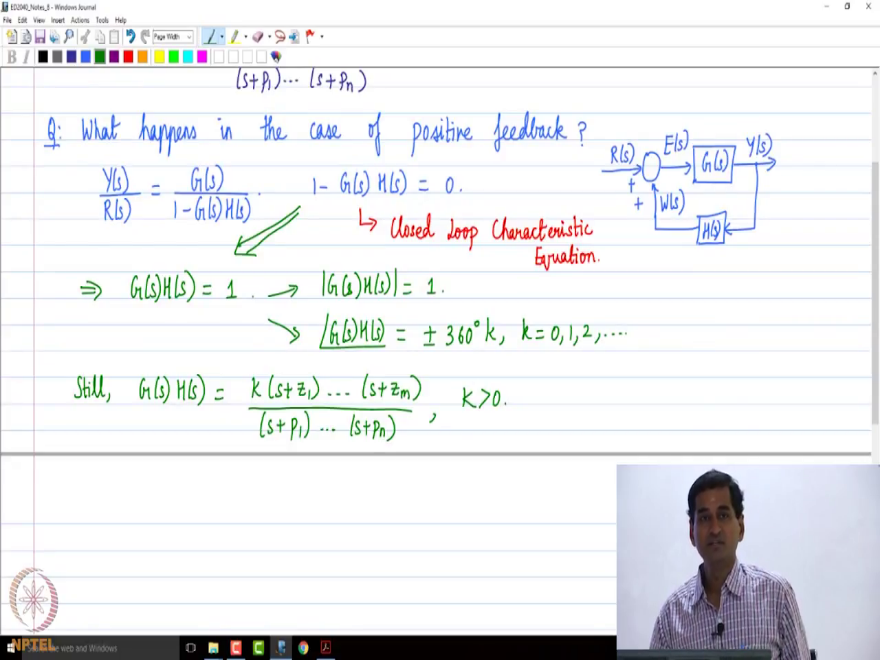 ED2040_Notes_8 - Windows Journal
File Edit View Insert Actions Tools Help
Page Width
B I
(s+p₁)... (s+pₙ)
Q: What happens in the case of positive feedback?
R(s) E(s) G(s) Y(s)
+
+ W(s)
H(s)
Y(s)/R(s) = G(s)/(1-G(s)H(s)). 1- G(s) H(s) = 0.
↳ Closed Loop Characteristic
Equation.
⇒ G(s)H(s) = 1. → |G(s)H(s)| = 1.
↘ /G(s)H(s) = ± 360° k, k=0,1,2,....
Still, G(s) H(s) = K (s+z₁) ... (s+zₘ)/(s+p₁) ... (s+pₙ), K>0.
NPTEL
the web and Windows